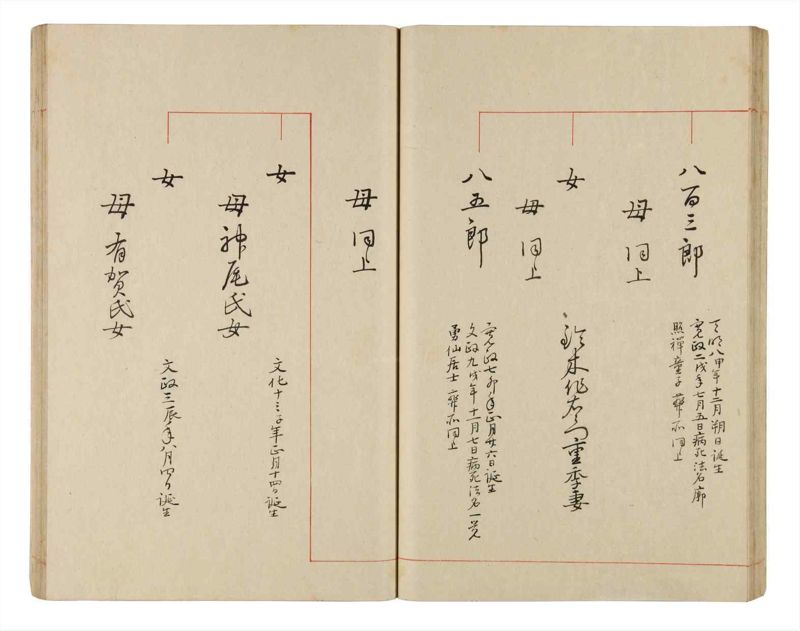 八百三郎
母同上
天明八申年十二月朔日誕生
寛政二戌年七月五日病死法名廓
照禅童子葬所同上
女
母同上
鈴木作右衛門重季妻
八五郎
寛政七卯年正月廿六日誕生
文政九戌年十一月七日病死法名一覚
勇仙居士葬所同上
母同上
女
母神尾氏女
文化十三子年正月十四日誕生
女
母有賀氏女
文政三辰年八月四日誕生